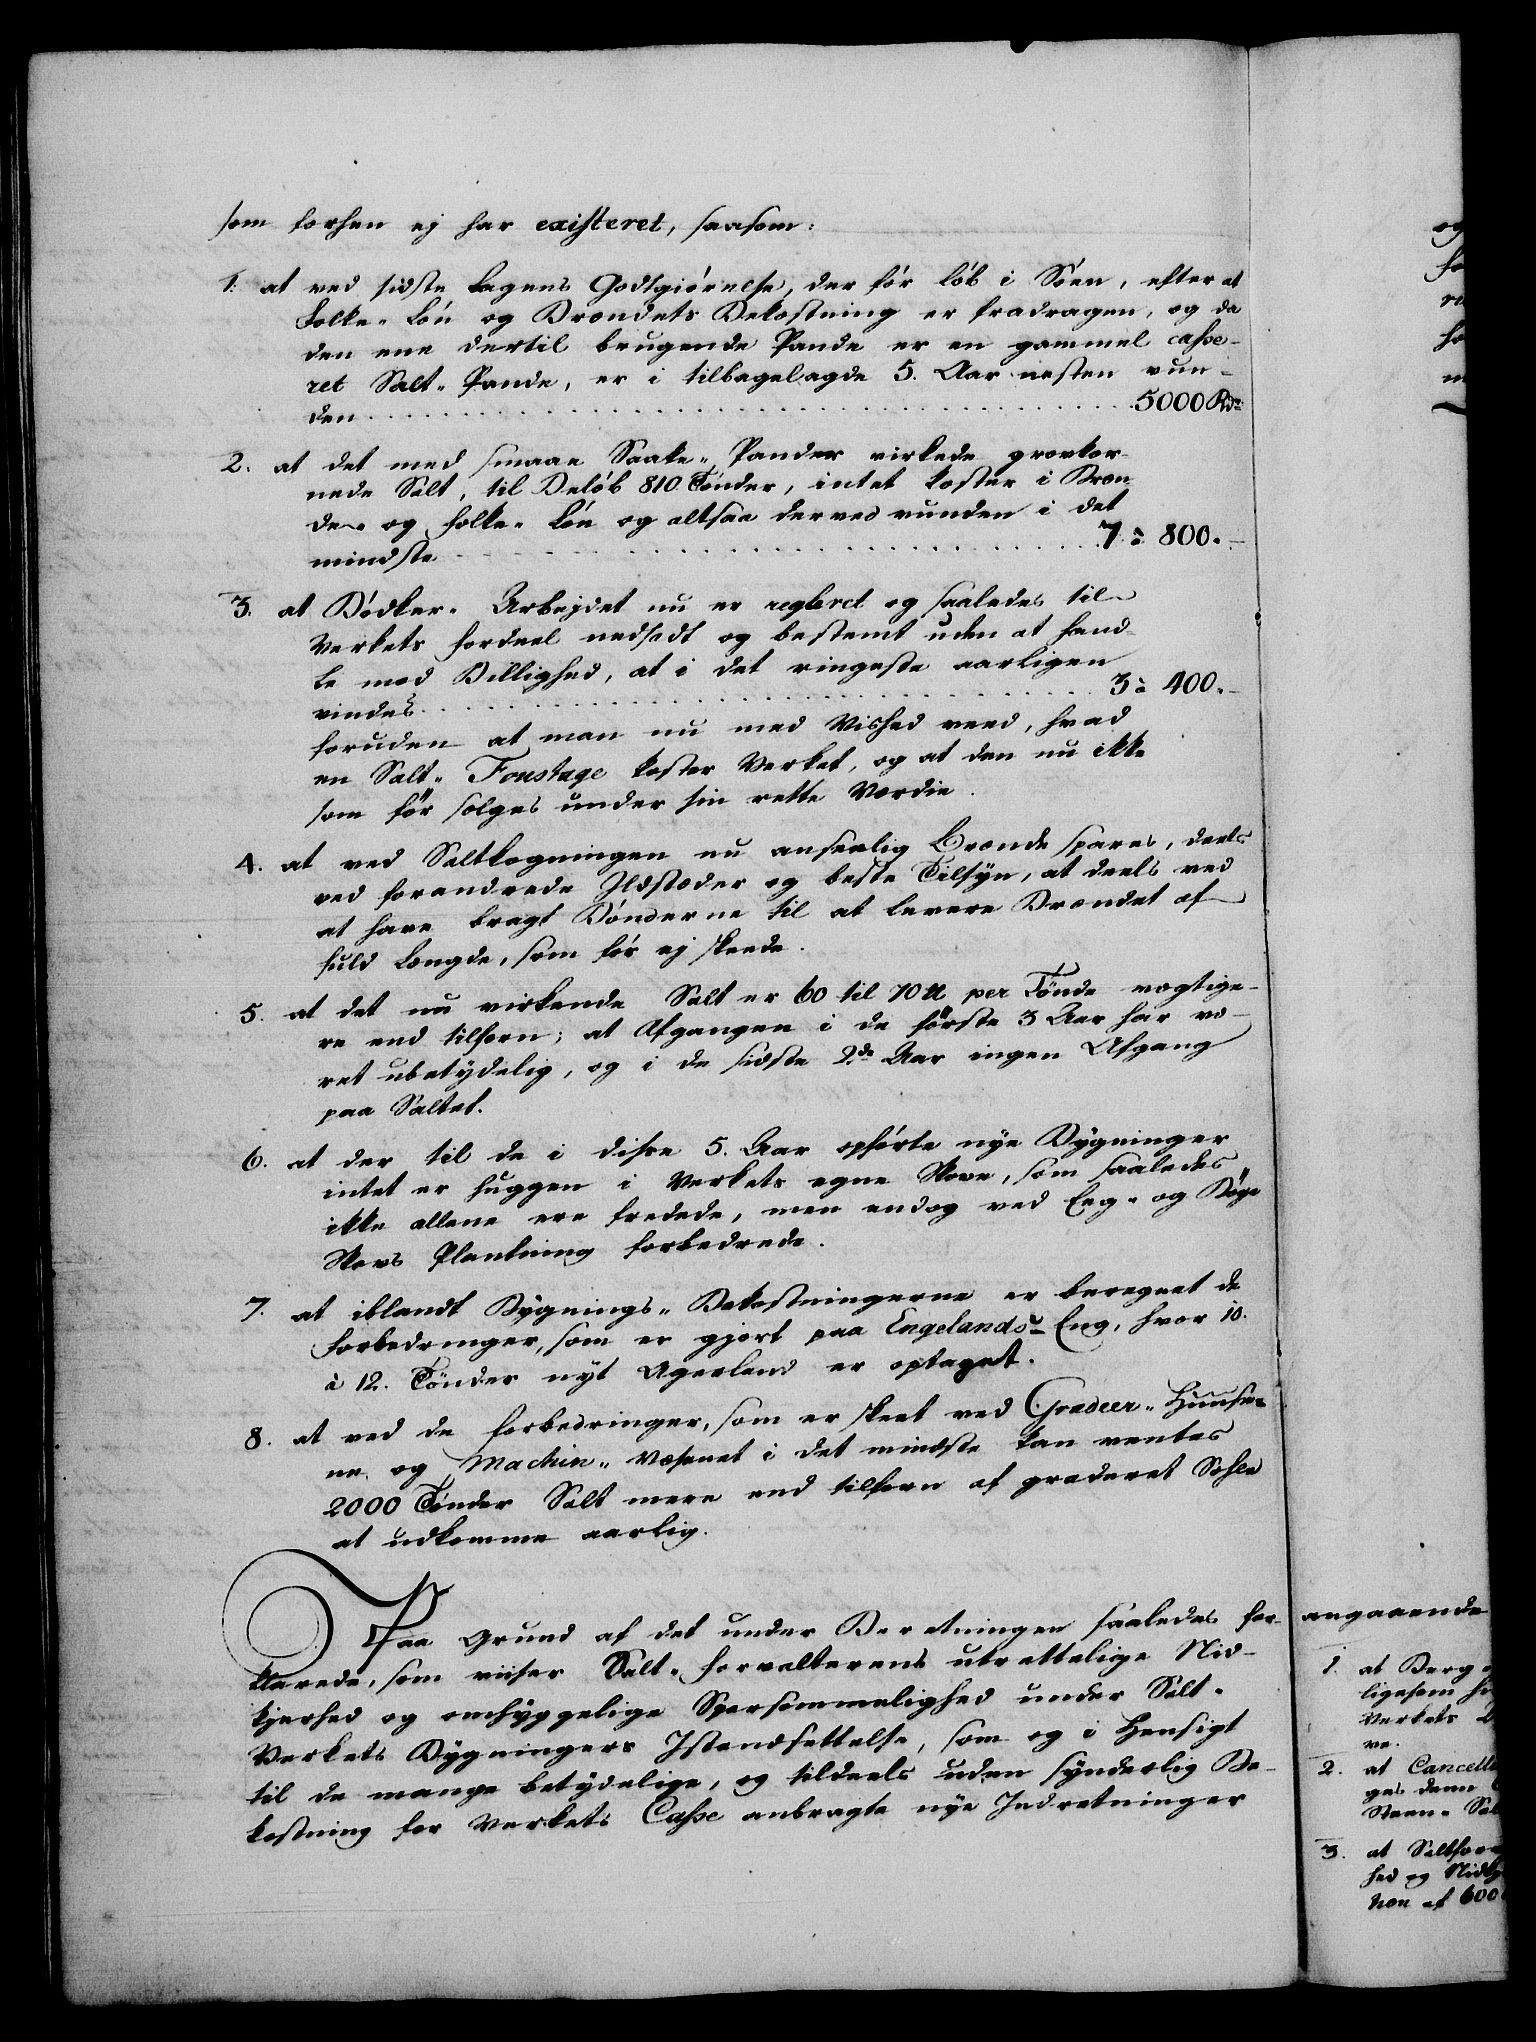 som forhen ej har existeret, saasom:
1. at ved sidste Lagens Godtgiörelse, der för löb i Söen, efter at
Folke-Lön og Brændets Bekostning er fradragen, og da
den ene dertil brugende Pande er en gammel casse-
ret Salt-Pande, er i tilbagelagde 5. Aar næsten vun-
den . . . 5000 Rd
2. at det med smaae Saake-Pander virkede grovkor-
nede Salt, til Beløb 810 Tönder, intet koster i Bræn-
de- og Folke-Lön og altsaa derved vunden i det
mindste . . . 7 à 800.
3. at Bödker-Arbejdet nu er regleret og saaledes til
Verkets Fordeel nedsadt og bestemt uden at hand-
le mod Billighed, at i det ringeste aarligen
vindes . . . 3 à 400.
foruden at man nu med Vished veed, hvad
en Salt-Foustage koster Verket, og at den nu ikke
som för sælges under sin rette Værdie.
4. at ved Saltkogningen nu anseelig Brænde spares, deels
ved forandrede Ildstæder og beste Tilsyn, at deels ved
at have bragt Bönderne til at levere Brændet af
fuld Længde, som för ej skeede.
5. at det nu virkende Salt er 60 til 70 ℔ per Tönde vægtige-
re end tilforn; at Afgangen i de förste 3 Aar har væ-
ret ubetydelig, og i de sidste 2de Aar ingen Afgang
paa Saltet.
6. at der til de i disse 5. Aar opförte nye Bygninger
intet er huggen i Verkets egne Skove, som saaledes
ikke allene ere fredede, men endog ved Eeg- og Böge
Skovs Plantning forbedrede.
7. at iblandt Bygnings-Bekostningerne er beregnet de
Forbedringer, som er gjort paa Engelands Eng, hvor 10.
à 12. Tönder nyt Agerland er optaget.
8. at ved de Forbedringer, som er skeet ved Gradeer-Huuse-
ne og Machin-Væsenet i det mindste kan ventes
2000 Tönder Salt mere end tilforn af graderet Sohle
at udkomme aarlig.
Paa Grund af det under Beretningen saaledes for-
klarede, som viiser Salt-Forvalterens utrættelige Nid-
kjerhed og omhyggelige Sparsommelighed under Salt-
Verkets Bygningers Istandsættelse, som og i Hensigt
til de mange betydelige, og tildeels uden synderlig Be-
kostning for Verkets Casse anbragte nye Indretninger
og
angaaende
1. at Berg
ligesom
Verkets
ve.
2. at
ges denn
Steen-
3. at
hed og
tion af 600